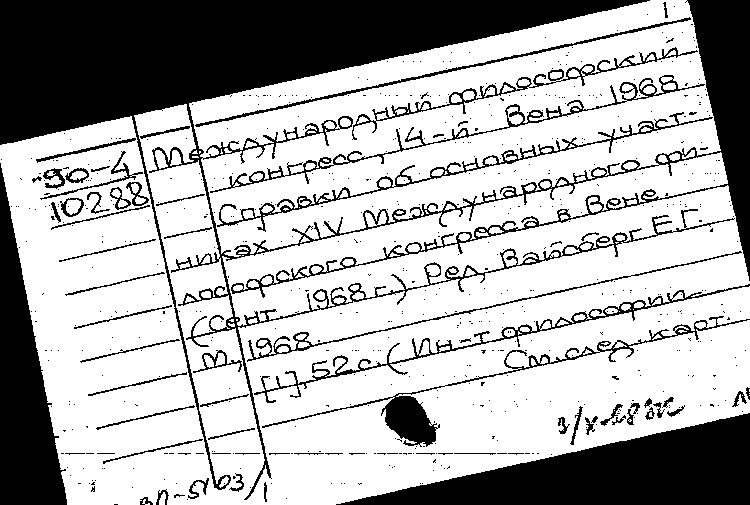 1
90-4
10288
Международный философский
конгресс, 14-й. Вена 1968.
Справки об основных участ-
никах XIV Международного фи-
лософского конгресса в Вене.
(Сент. 1968 г.). Ред. Вайсберг Е.Г.
М., 1968.
[1], 52 с. (Ин-т философии
См. след. карт.